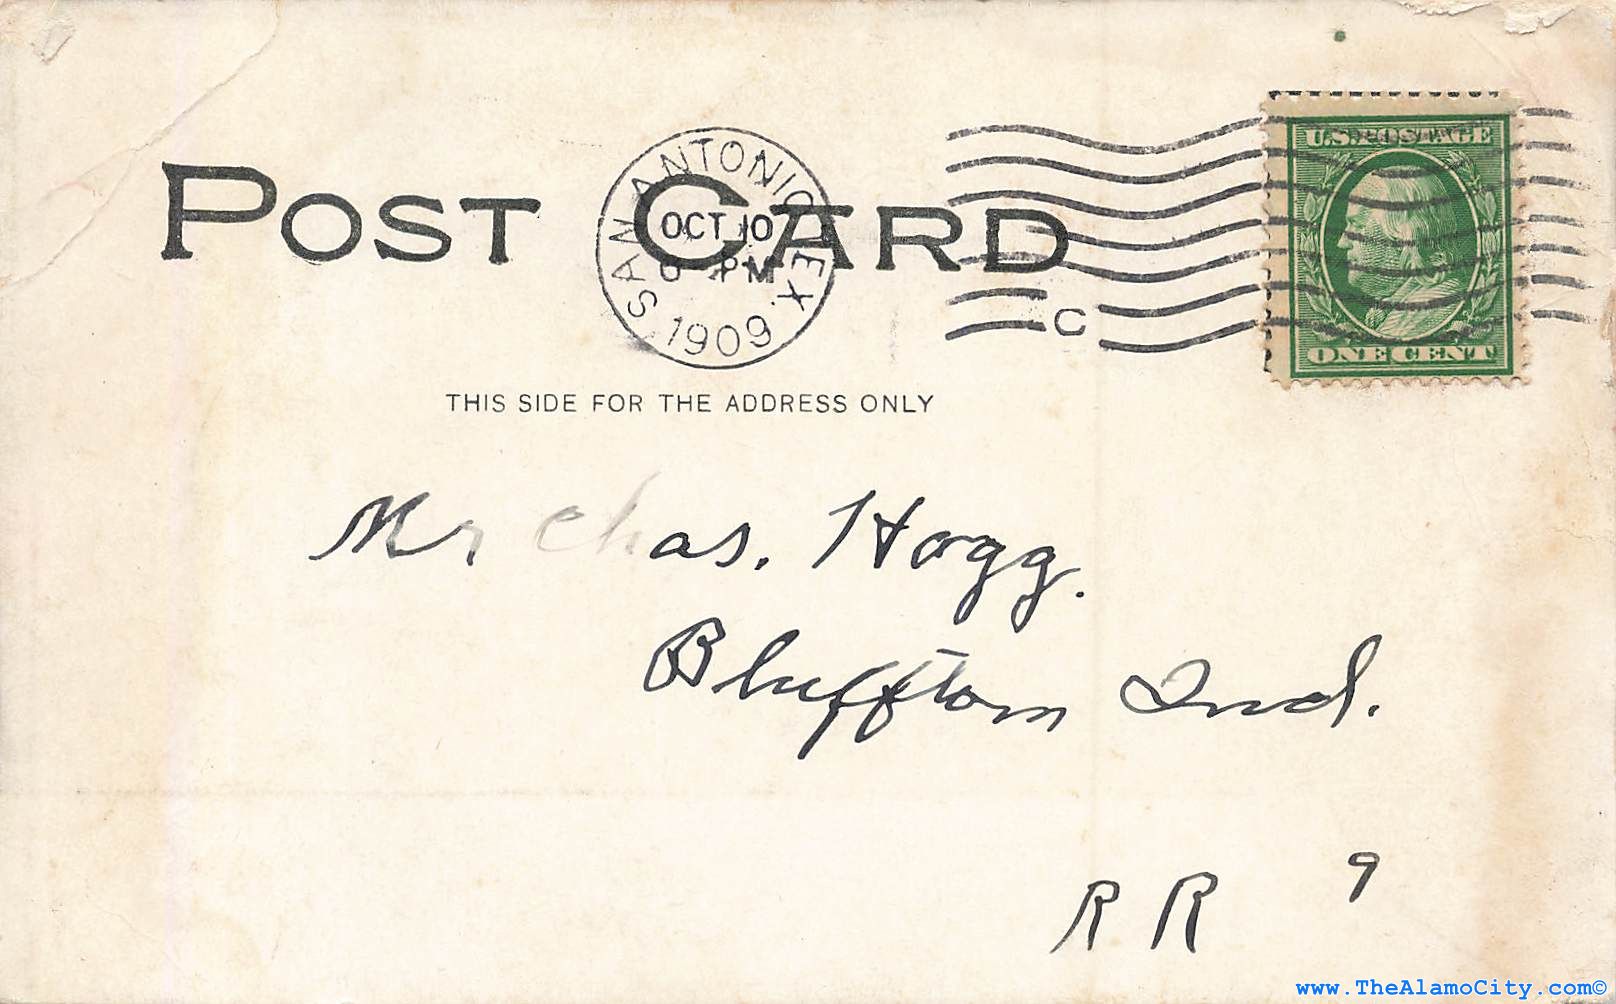 U.S. POSTAGE
POST CARD
SAN ANTONIO, TEX.
OCT 10
PM
1909
C
ONE CENT
THIS SIDE FOR THE ADDRESS ONLY
Mr Chas. Hogg.
Bluffton Ind.
R R 9
www.TheAlamoCity.com©